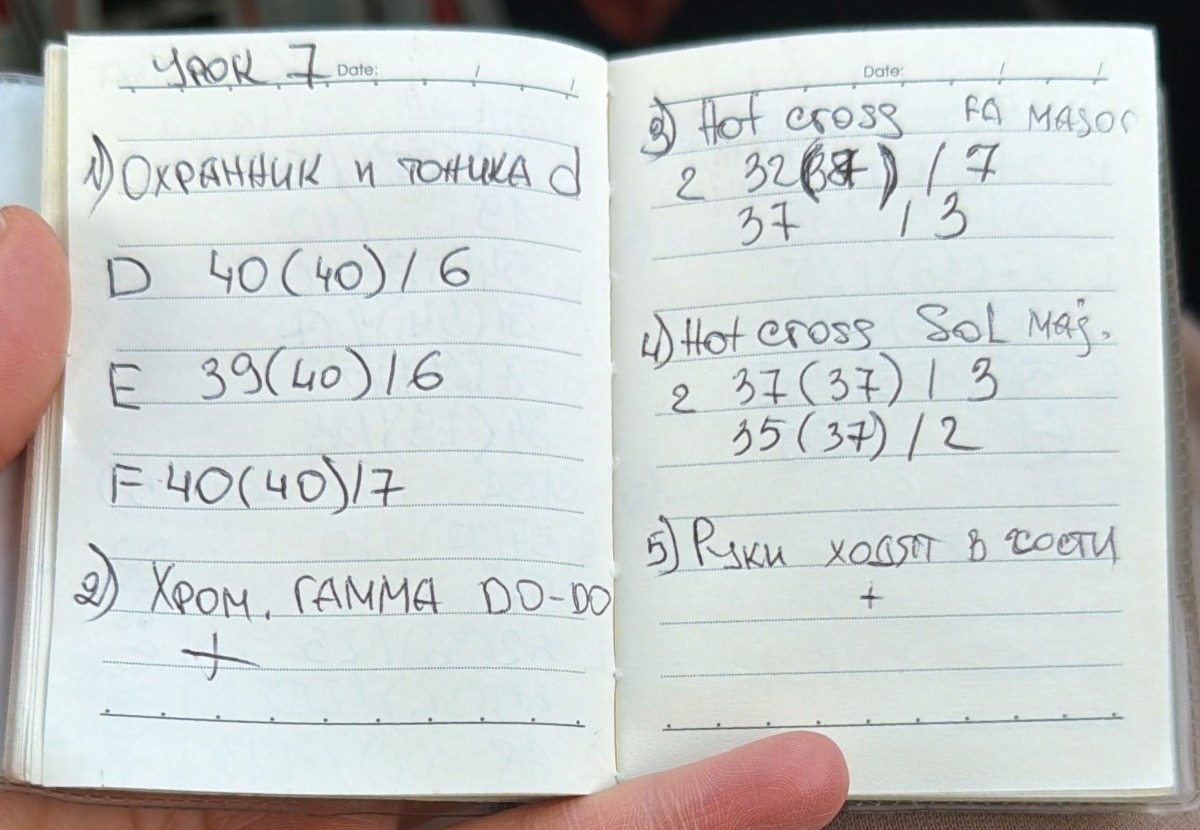 УРОК 7 Date: / /
1) ОХРАННИК И ТОНИКА d
D 40(40)/6
E 39(40)/6
F 40(40)/7
2) ХРОМ. ГАММА DO-DO
+
Date: / /
3) Hot cross FA MAJOR
2 32(37) / 7
37 / 3
4) Hot cross Sol maj.
2 37(37) / 3
35(37) / 2
5) Руки ходят в гости
+